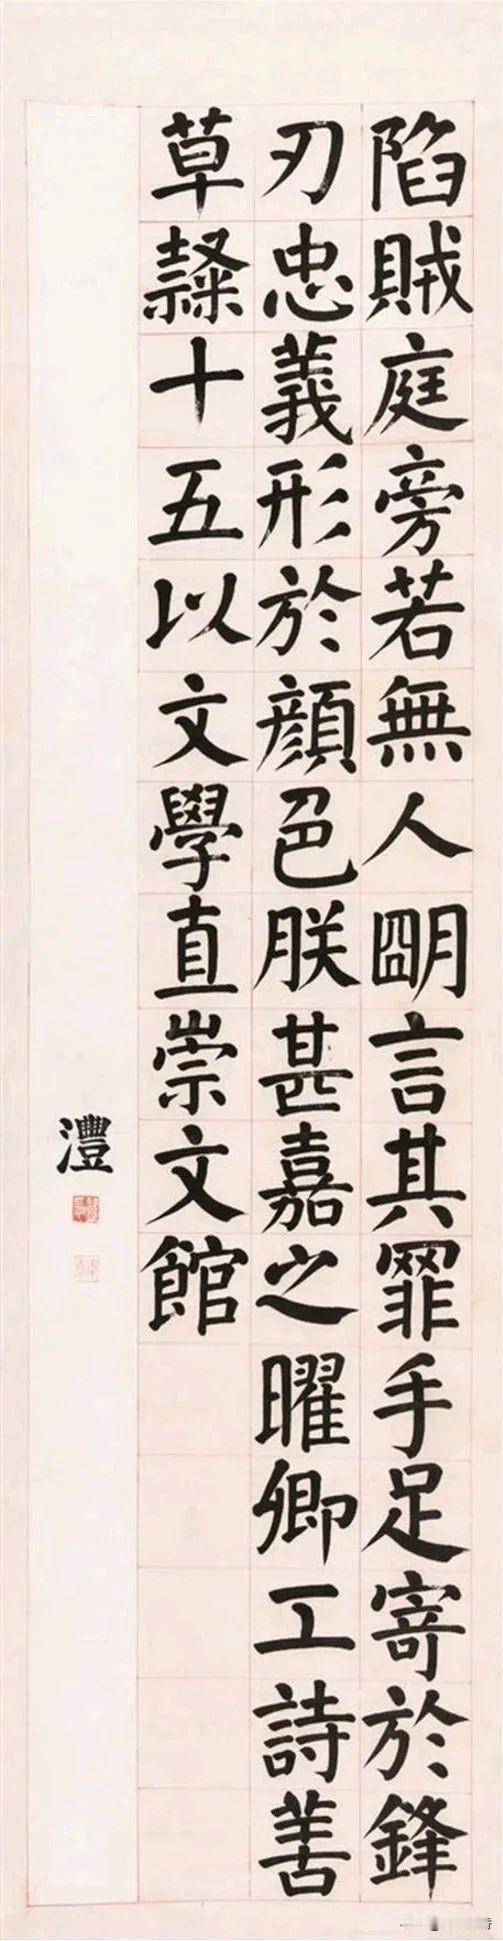 陷賊庭旁若無人朙言其罪手足寄於鋒
刃忠義形於顔色朕甚嘉之曜卿工詩善
草隸十五以文學直崇文館
澧